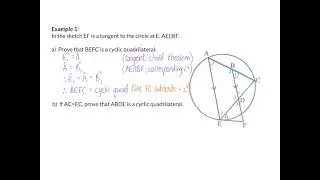 Example 1:
In the sketch EF is a tangent to the circle at E. AE||BF.
a) Prove that BEFC is a cyclic quadrilateral.
Ê₁ = Â (tangent-chord theorem)
Â = B̂₁ (AE||BF; corresponding ∠'s)
∴ Ê₁ = B̂₁
∴ BEFC = cyclic quad (line FC subtends = ∠'s)
b) If AC=EC, prove that ABDE is a cyclic quadrilateral.
A
B
C
D
E
F